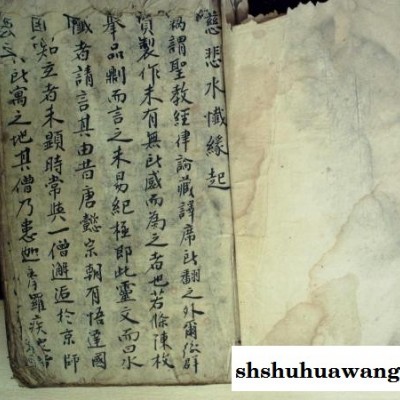 慈悲水懺緣起
謂聖教經律論藏譯席所翻之外爾後群
賢製作未有無所感而為之者也若條陳枚
舉品而言之未易紀極即此靈文而曰水
懺者請言其由昔唐懿宗朝有悟達國
知玄者未顯時常與一僧邂逅於京師
所寓之地其僧乃患迦摩羅疾
shshuhuawang